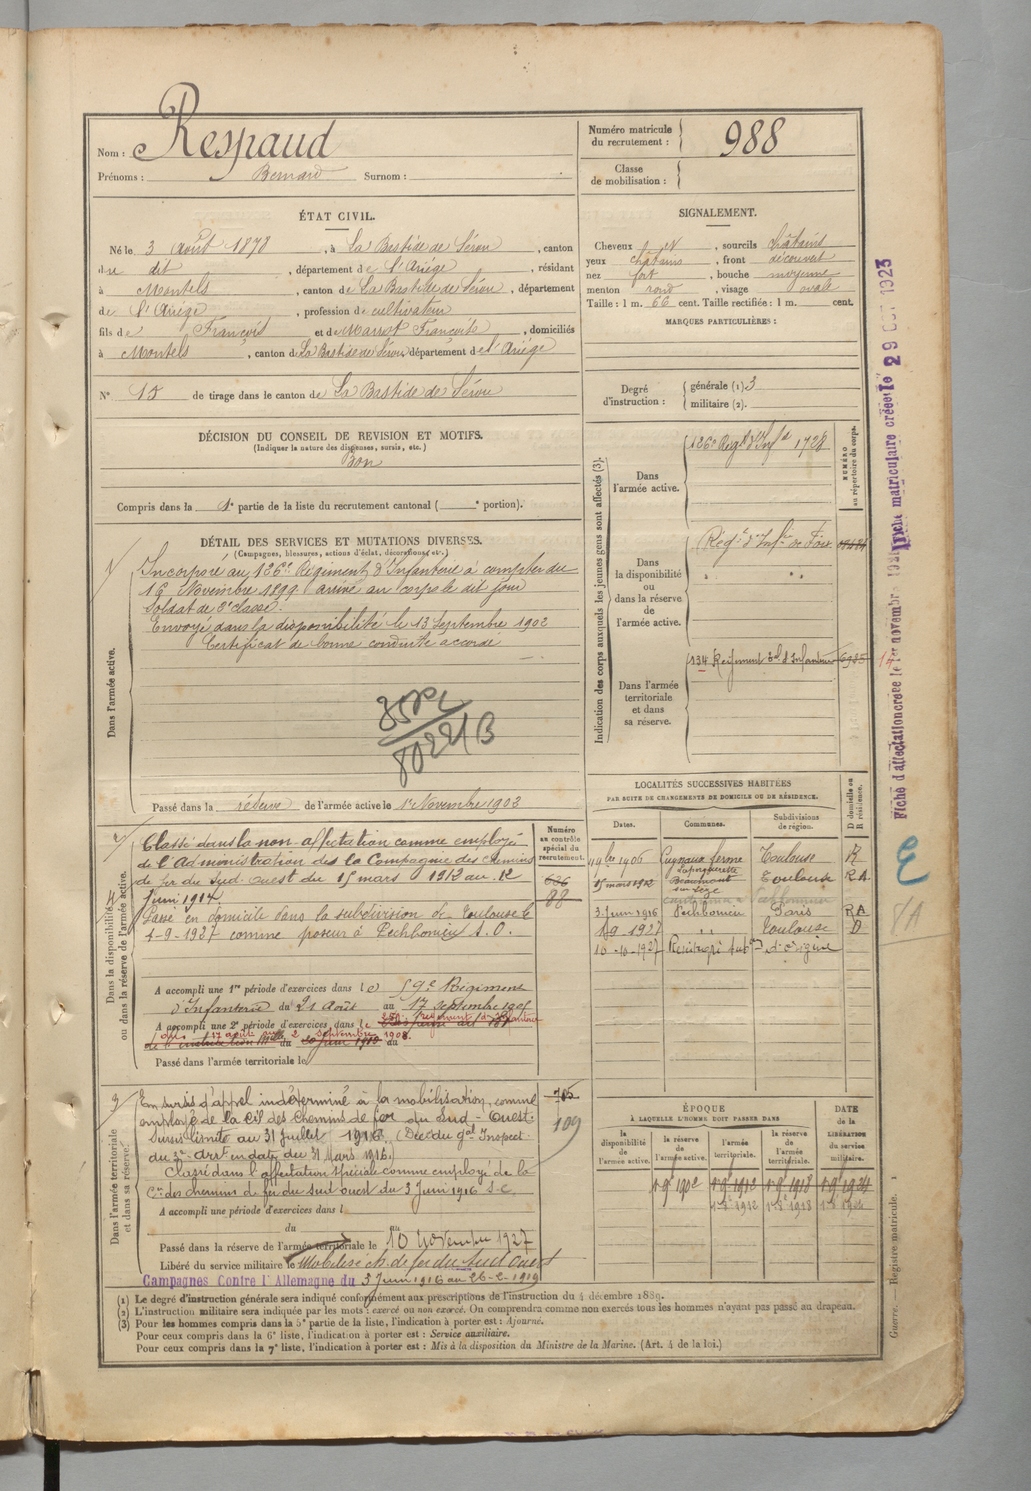 Nom : Respaud
Prénoms : Bernard Surnom :
Numéro matricule du recrutement : 988
Classe de mobilisation :
ÉTAT CIVIL.
Né le 3 Août 1878, à La Bastide de Sérou, canton
du dit, département de l'Ariége, résidant
à Montels, canton de La Bastide de Sérou, département
de l'Ariége, profession de cultivateur
fils de François et de Marrot Françoise, domiciliés
à Montels, canton de La Bastide de Sérou département de l'Ariége
N° 15 de tirage dans le canton de La Bastide de Sérou
SIGNALEMENT.
Cheveux et, sourcils châtains
yeux châtains, front découvert
nez fort, bouche moyenne
menton rond, visage ovale
Taille : 1 m. 66 cent. Taille rectifiée : 1 m. cent.
MARQUES PARTICULIÈRES :
Degré d'instruction : générale (1) 3
militaire (2).
DÉCISION DU CONSEIL DE REVISION ET MOTIFS.
(Indiquer la nature des dispenses, sursis, etc.)
Bon
Compris dans la 1e partie de la liste du recrutement cantonal ( e portion).
DÉTAIL DES SERVICES ET MUTATIONS DIVERSES.
(Campagnes, blessures, actions d'éclat, décorations, etc.)
Dans l'armée active.
Incorporé au 126e Régiment d'Infanterie à compter du
16 Novembre 1899 arrivé au corps le dit jour
Soldat de 2e classe.
Envoyé dans la disponibilité le 13 Septembre 1902
Certificat de bonne conduite accordé
Passé dans la réserve de l'armée active le 1er Novembre 1902
Indication des corps auxquels les jeunes gens sont affectés (3).
NUMÉRO au répertoire du corps.
Dans l'armée active.
126e Régt d'Infie 1728
Dans la disponibilité ou dans la réserve de l'armée active.
Régt d'Infie de Foix
Dans l'armée territoriale et dans sa réserve.
134 Régiment d'Infanterie
Dans la disponibilité ou dans la réserve de l'armée active.
Numéro au contrôle spécial du recrutement.
Classé dans la non-affectation comme employé
de l'Administration des la Compagnie des chemins
de fer du Sud-Ouest du 15 mars 1912 au 12
Juin 1914
636
88
Passé en domicile dans la subdivision de Toulouse le
1-9-1927 comme poseur à Pechbonieu S.O.
A accompli une 1re période d'exercices dans le 59e Régiment
d'Infanterie du 21 Août au 17 septembre 1905
A accompli une 2e période d'exercices dans le
du 17 août au 2 septembre 1908.
Passé dans l'armée territoriale le
LOCALITÉS SUCCESSIVES HABITÉES
PAR SUITE DE CHANGEMENTS DE DOMICILE OU DE RÉSIDENCE.
Dates. Communes. Subdivisions de région. D domicile ou R résidence.
9bre 1906 ferme Toulouse R
15 mars 1912 Beaumont sur Lèze Toulouse RA
3 Juin 1916 Pechbonieu Paris RA
1-9-1927 " Toulouse D
10-10-1927 d'origine
Dans l'armée territoriale et dans sa réserve.
En sursis d'appel indéterminé à la mobilisation, comme
employé de la Cie des chemins de fer du Sud-Ouest.
Sursis limité au 31 Juillet 1916 (Déc. du Gal Inspect.
du 3e Arrt en date du 31 Mars 1916.)
Classé dans l'affectation spéciale comme employé de la
Cie des chemins de fer du sud ouest du 3 Juin 1916 S.C.
785
109
A accompli une période d'exercices dans l
du au
Passé dans la réserve de l'armée territoriale le
Libéré du service militaire le 10 novembre 1927
Mobilisé ch. de fer du Sud ouest
Campagnes Contre l'Allemagne du 3 Juin 1916 au 26-2-1919
ÉPOQUE
À LAQUELLE L'HOMME DOIT PASSER DANS
DATE de la LIBÉRATION du service militaire.
la disponibilité de l'armée active. la réserve de l'armée active. l'armée territoriale. la réserve de l'armée territoriale.
1 9e 1902 1 9e 1912 1 9e 1918 1 9e 1924
1 8e 1912 1 8e 1918 1 8e 1924
(1) Le degré d'instruction générale sera indiqué conformément aux prescriptions de l'instruction du 4 décembre 1889.
(2) L'instruction militaire sera indiquée par les mots : exercé ou non exercé. On comprendra comme non exercés tous les hommes n'ayant pas passé au drapeau.
(3) Pour les hommes compris dans la 5e partie de la liste, l'indication à porter est : Ajourné.
Pour ceux compris dans la 6e liste, l'indication à porter est : Service auxiliaire.
Pour ceux compris dans la 7e liste, l'indication à porter est : Mis à la disposition du Ministre de la Marine. (Art. 4 de la loi.)
Guerre. Registre matricule. 1
Fiche matriculaire créée le 29 1923
Fiche d'affectation créée le 1er novembre